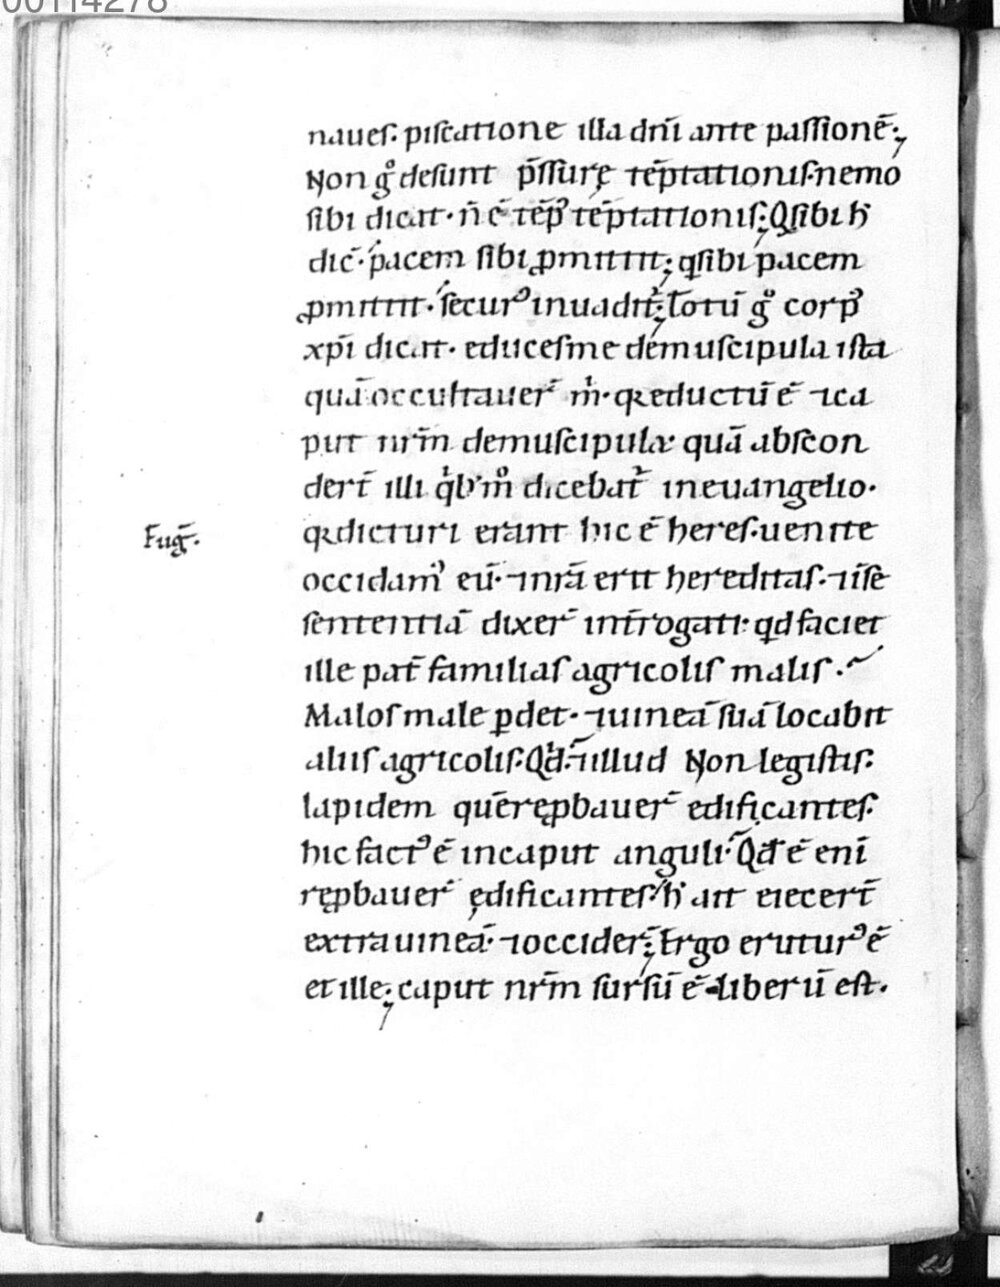 00114278
naues. piscatione illa dn̄i ante passionē.,
Non gͦ desunt p̄ssurę tēptationis. nemo
sibi dicat. n̄ ē tēp᷒ tēptationis; Q sibi h̄
dic̄. pacem sibi ꝓmittit; q sibi pacem
ꝓmittit. secur᷒ inuadit᷑; Totū gͦ corp᷒
xp̄i dicat. educes me de muscipula ista
quā occultauer̄ m̍. q eductū ē ⁊ ca
put nr̄m de muscipula quā abscon
dert̄ illi q̍b᷒ mͦ dicebat᷑ in euangelio.
q dicturi erant hic ē heres. uenite
occidam᷒ eū. ⁊ nr̄a erit hereditas. ⁊ i se
Fug̅.
sententiā dixer̄ int̄rogati. qd faciet
ille pat̄ familias agricolis malis.
Malos male ꝑdet. ⁊ uineā suā locabit
aliis agricolis. Qd. ⁊ illud Non legistis.
lapidem quē reꝓbauer̄ edificantes.
hic fact᷒ ē in caput anguli. Qd ē enī
reꝓbauer̄ ędificantes. h̄ ait eiecert̄
extra uineā. ⁊ occider̄; Ergo erutur᷒ ē
et ille; caput nr̄m sursū ē liberū est.